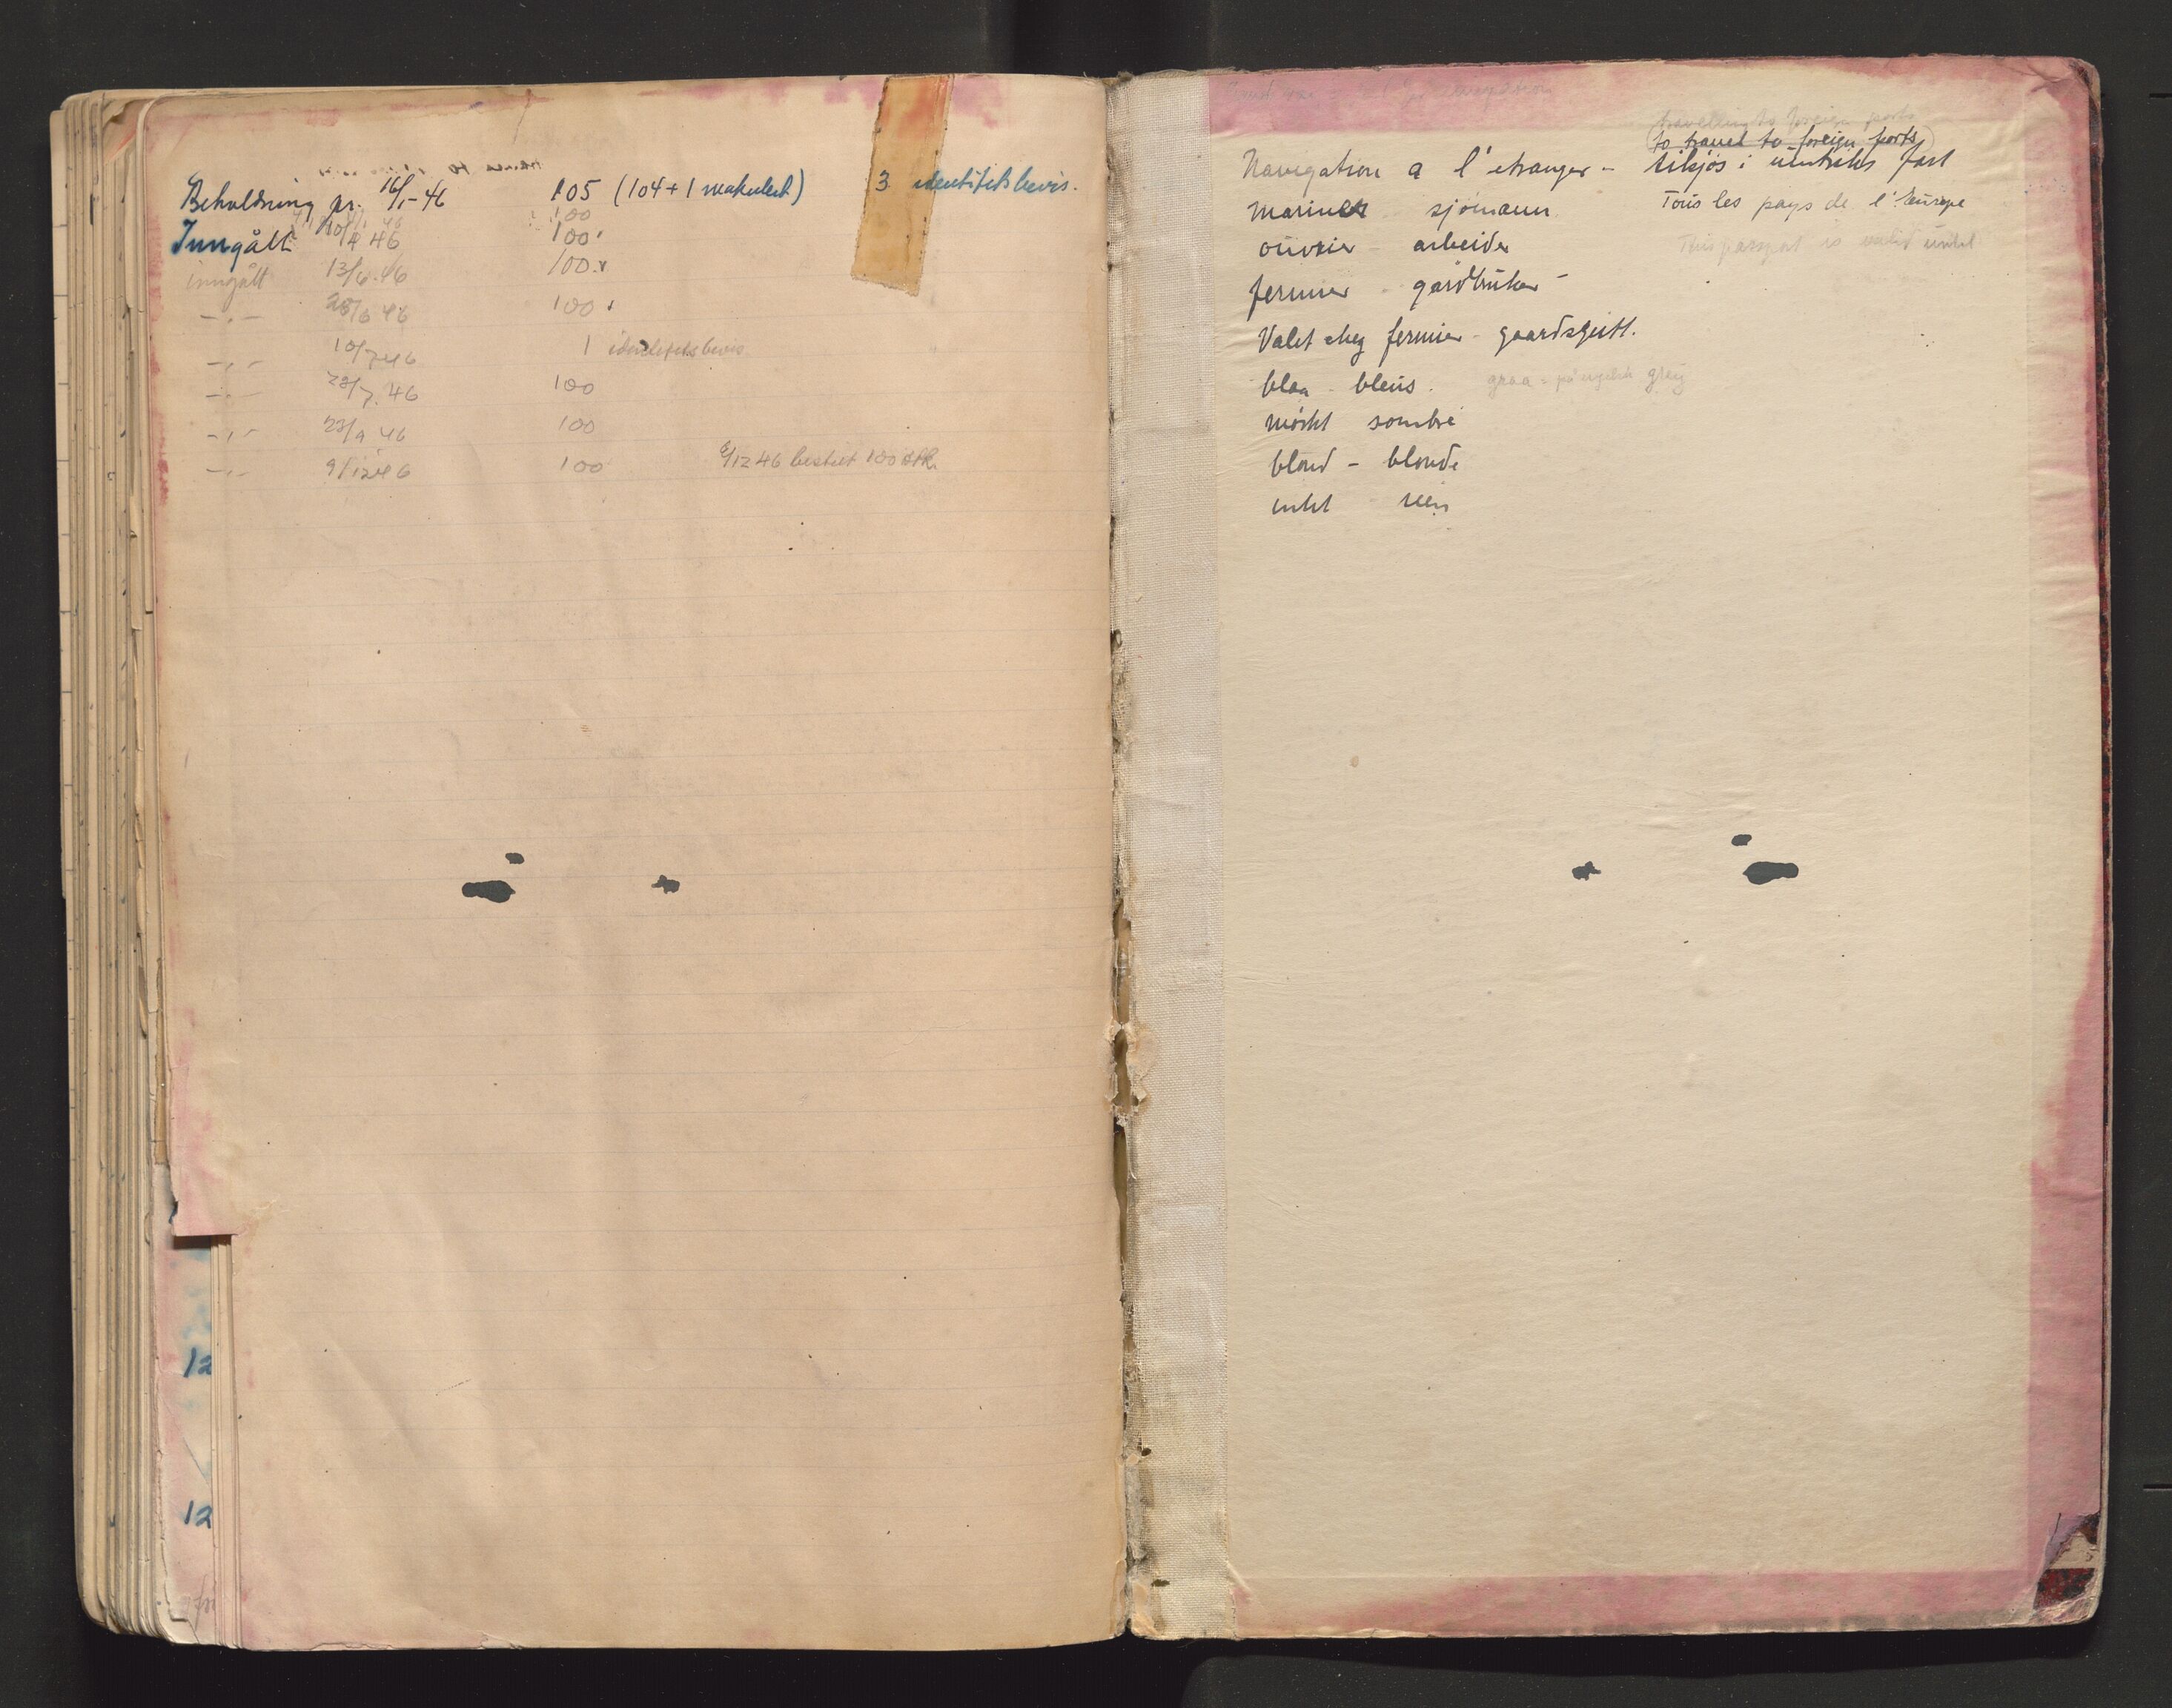 Beholdning pr. 16/1-46 105 (104 + 1 makulert) 3 identitetsbevis.
100
Inngått 10/4 46 100
inngått 13/6.46 100
-"- 28/6 46 100
-"- 10/7 46 1 identitetsbevis
-"- 28/7.46 100
-"- 23/9 46 100
-"- 9/12 46 100 9/12 46 bestilt 100 stk.
12
12
travelling to foreign ports
to travel to foreign ports
Navigation a l'etranger - tilsjös i utenriks fart
Mariner sjömann Tous les pays de l'Europe
ouvrier - arbeider This passport is valid until
fermier - gårdbruker
Valet chez fermier - gaardsgutt.
blaa - bleus. graa = på engelsk grey
mörkt sombre
blond - blonde
intet rien